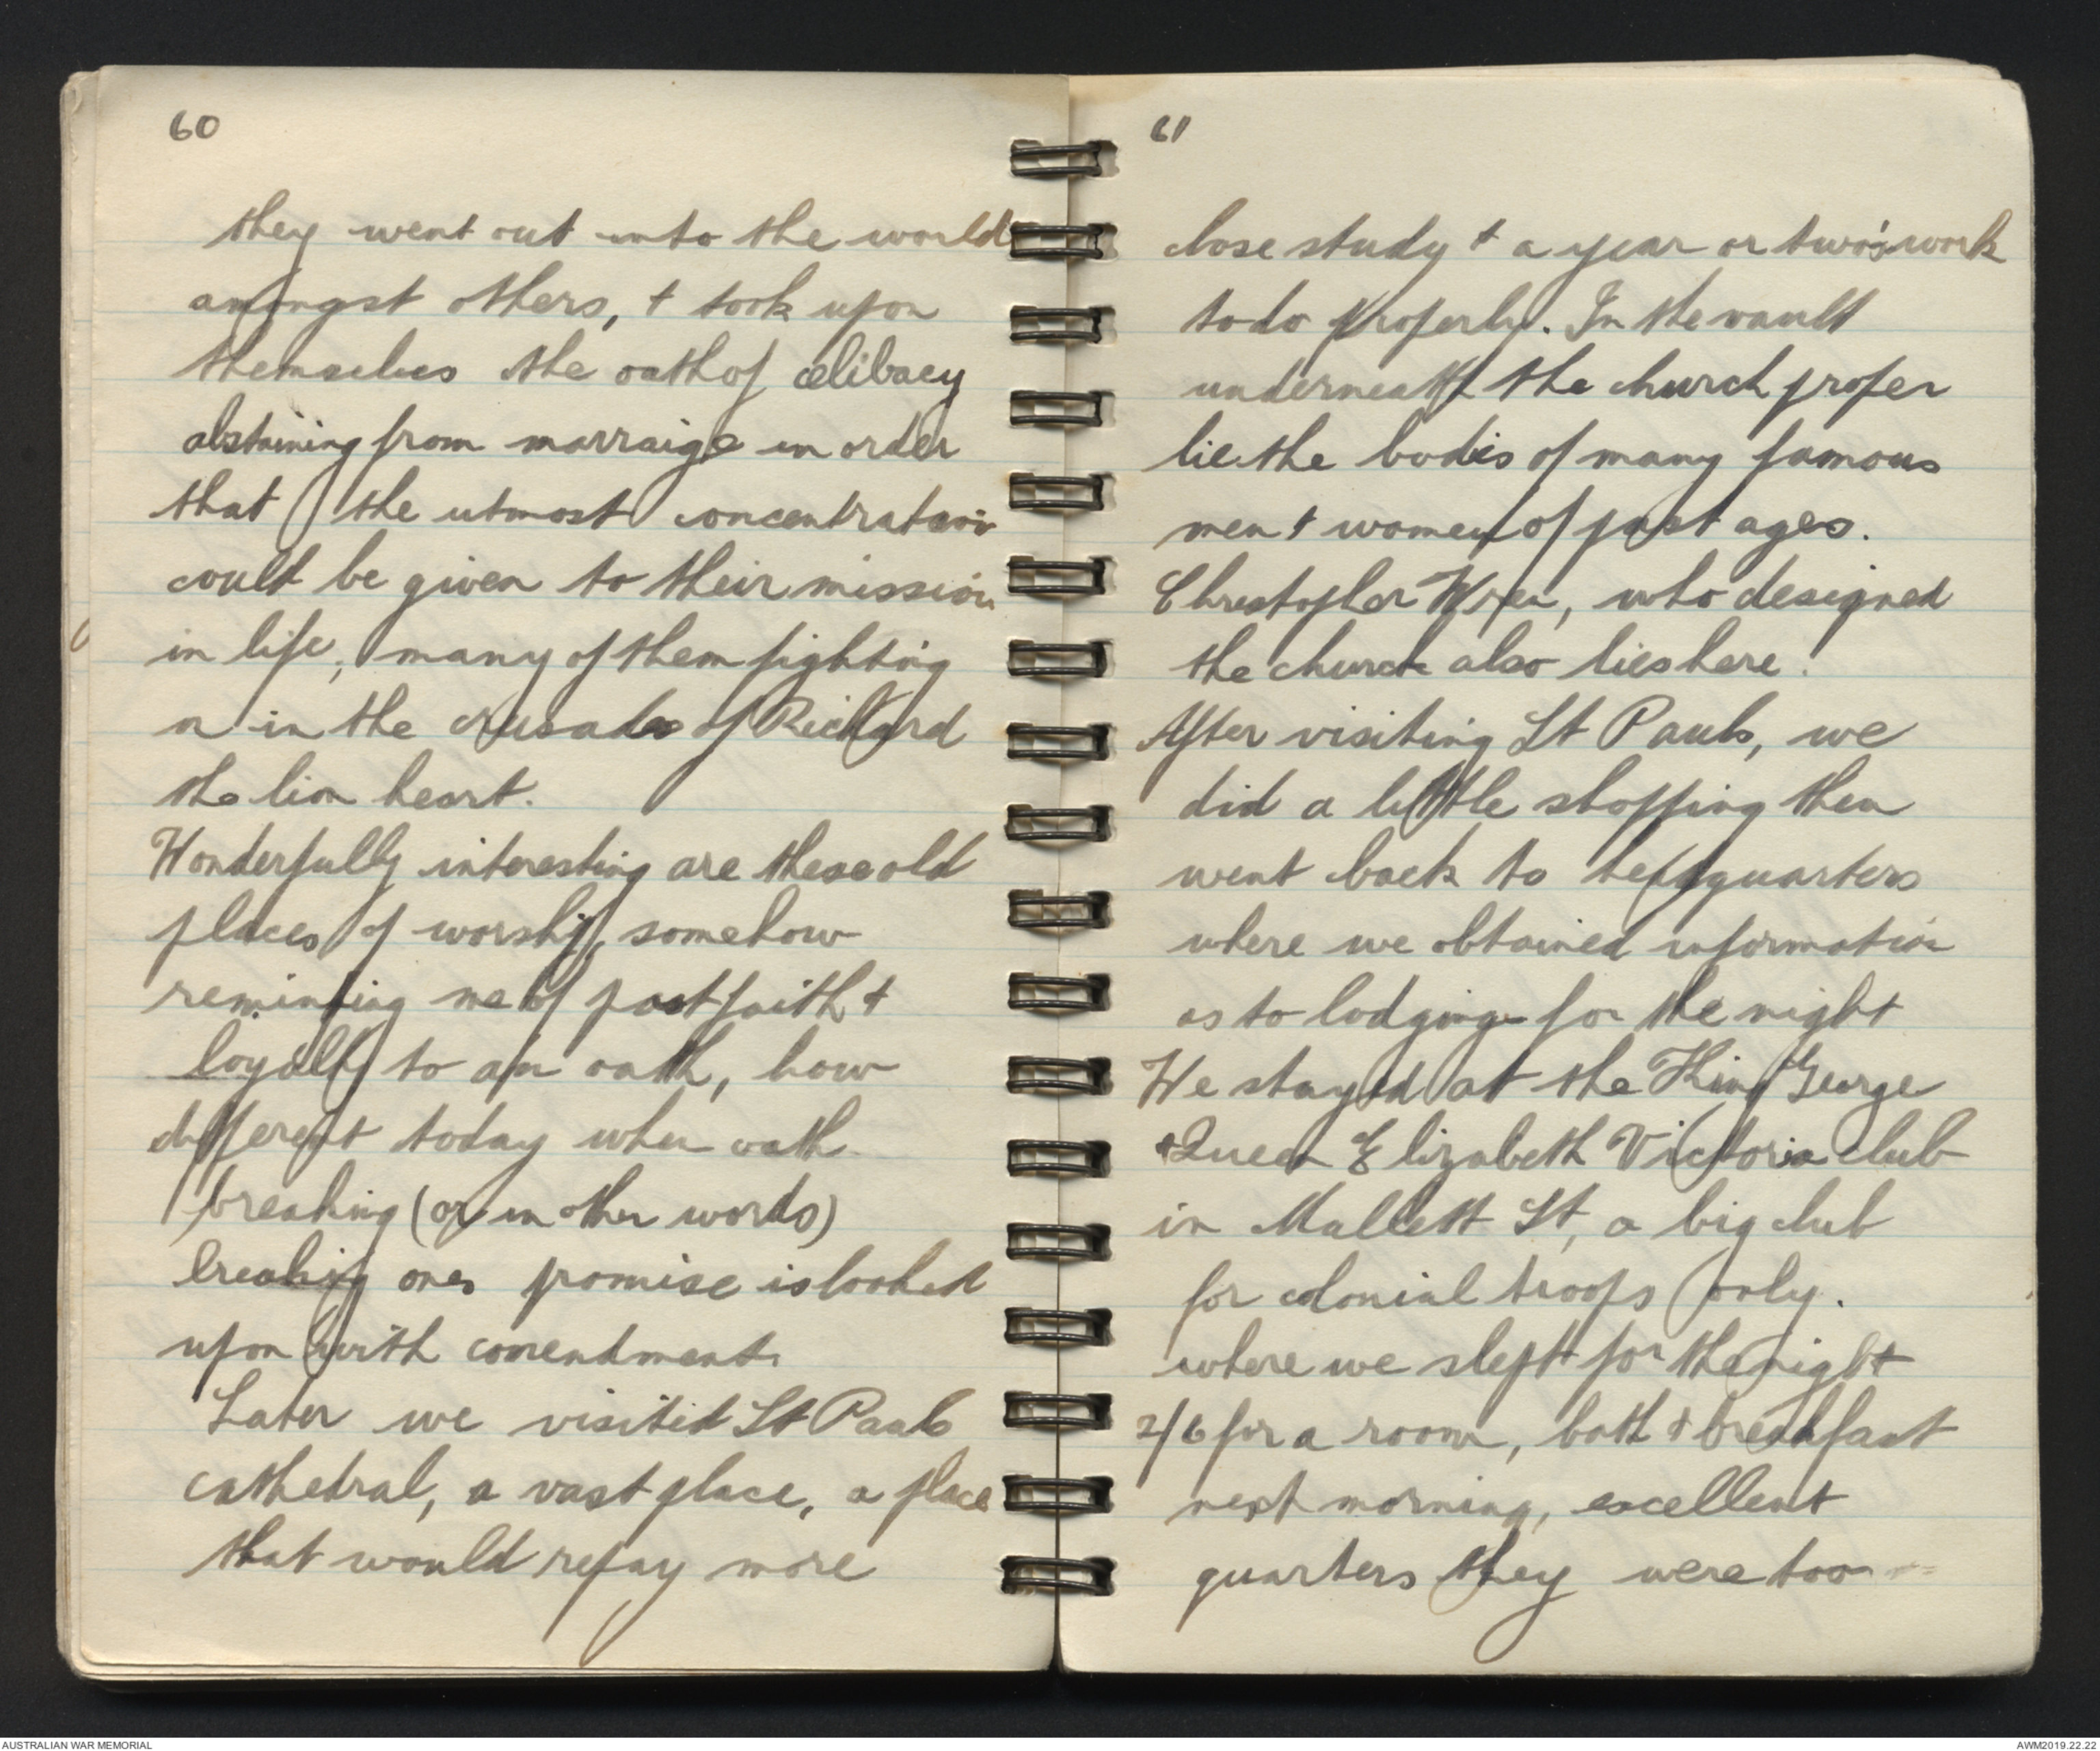 60
they went out into the world
amongst others, + took upon
themselves the oath of celibacy
abstaining from marraige in order
that the utmost concentration
could be given to their mission
in life, many of them fighting
in the crusades of Richard
the lion heart.
Wonderfully interesting are these old
places of worship, somehow
reminding me of past faith +
loyalty to an oath, how
different today when oath
breaking (or in other words)
breaking ones promise is looked
upon with
Later we visited St Pauls
cathedral, a vast place, a place
that would repay more
61
close study + a year or two's work
to do properly. In the vault
underneath the church proper
lie the bodies of many famous
men + women of past ages.
Christopher Wren, who designed
the church also lies here.
After visiting St Pauls, we
did a little shopping then
went back to headquarters
where we obtained information
as to lodging for the night
We stayed at the King George
+ Queen Elizabeth Victoria club
in Mallett St, a big club
for colonial troops only.
where we slept for the night
2/6 for a room, bath + breakfast
next morning, excellent
quarters they were too
AUSTRALIAN WAR MEMORIAL
AWM2019.22.22